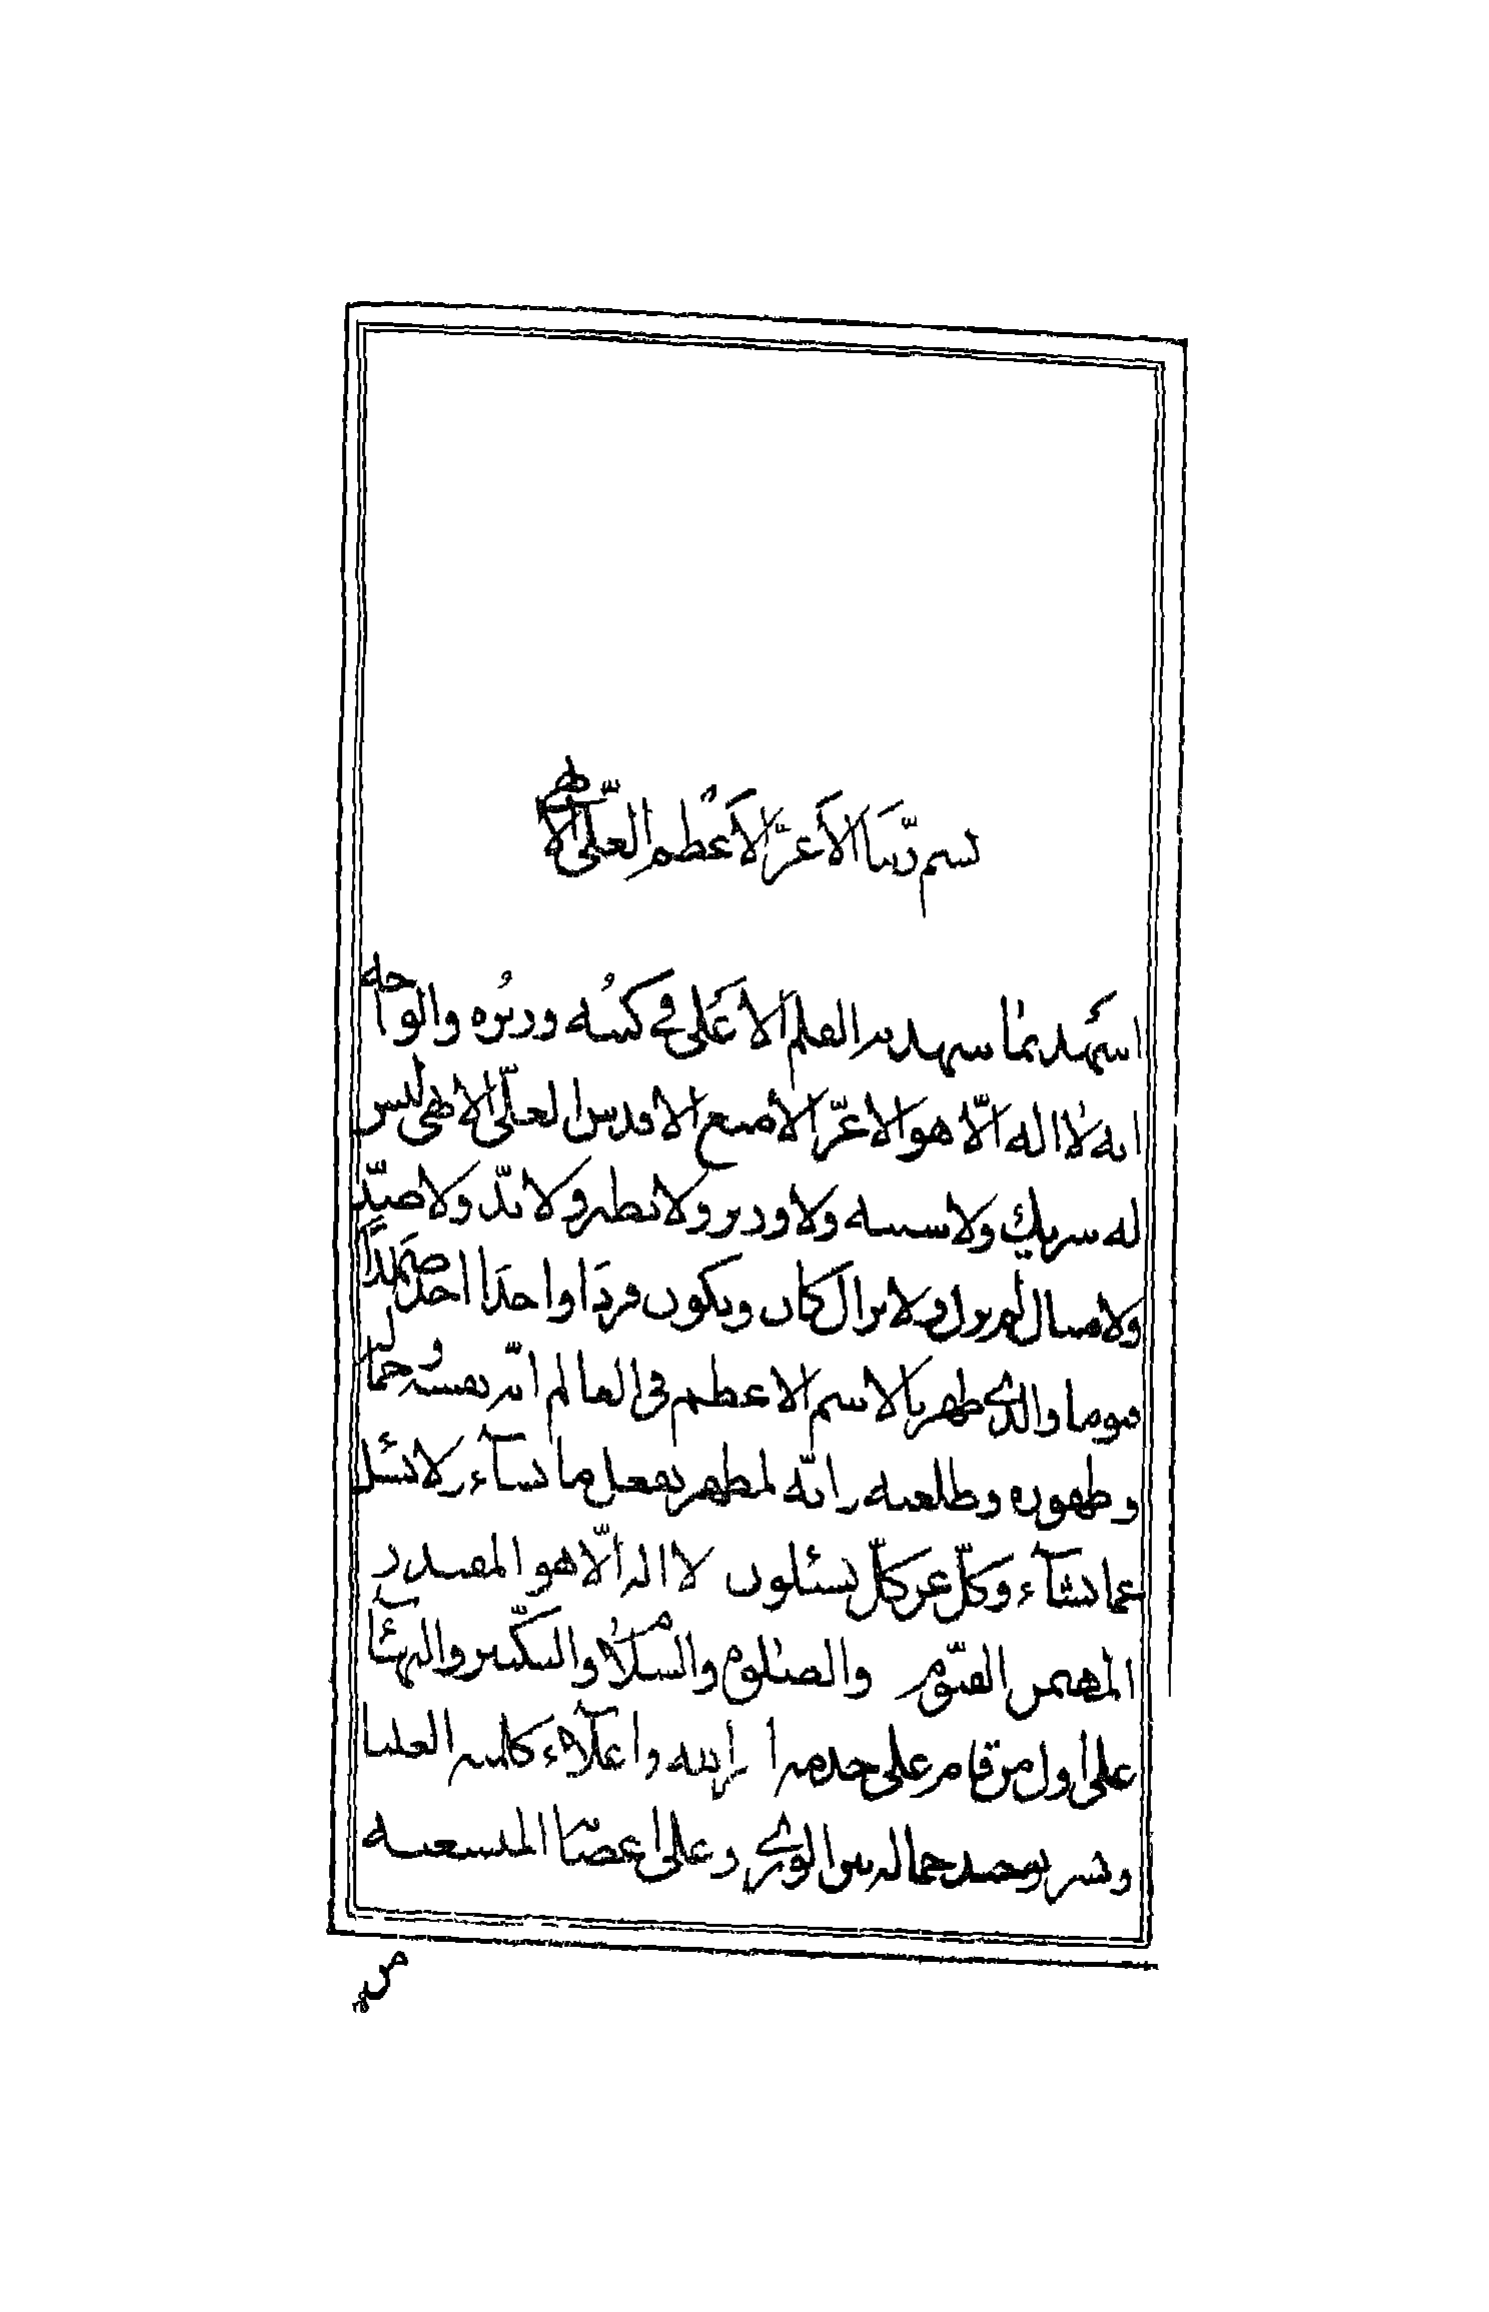 بسم ربّنا الأعزّ الأعظم العلّی الأبهی
اشهد بما شهد به القلم الأعلی فی کتبه وزبره والواحه
انه لا اله الّا هو الأعزّ الأمنع الأقدس العلّی الأبهی لیس
له شریك ولا شبیه ولا وزیر ولا نظیر ولا ندّ ولا ضدّ
ولا مثال لم یزل ولا یزال کان ویکون فردًا واحدًا احدًا صمدًا
قیوما والذی ظهر بالاسم الاعظم فی العالم انّه نفسه وجماله
وظهوره وطلعته وانّه لمظهر یفعل ما یشآء ولا یسئل
عما یشآء وکلّ عن کلّ یسئلون لا اله الّا هو المقتدر
المهیمن القیّوم والصلوة والسّلام والتکبیر والبهآء
علی اول من قام علی خدمة ا واعلآء کلمته العلیا
ونشر جماله بین الوری وعلی اغصان المنشعبة
من